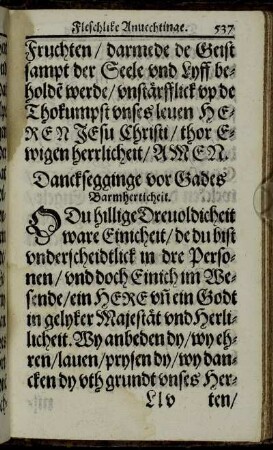 Fleschlike Anuechtinge. 537
Fruchten / darmede de Geist
sampt der Seele vnd Lyff be-
holdẽ werde / vnstärfflick vp de
Thokumpst vnses leuen HE-
REN JEsu Christi / thor E-
wigen herrlicheit / AMEN.
Dancksegginge vor Gades
Barmherticheit.
O Du hillige Dreuoldicheit
ware Einicheit / de du bist
vnderscheidtlick in dre Perso-
nen / vnd doch Einich im We-
sende / ein HERE vñ ein Godt
in gelyker Majestät vnd Herli-
licheit. Wy anbeden dy / wy eh-
ren / lauen / prysen dy / wy dan-
cken dy vth grundt vnses Her-
Ll v ten /